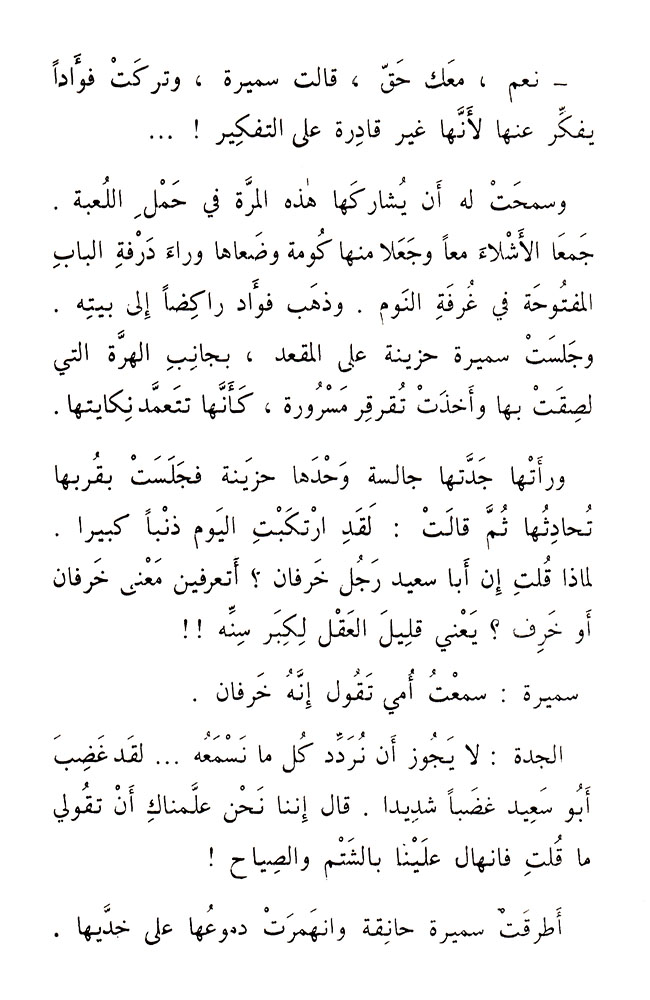 ـ نعم ، معَك حَقّ ، قالت سميرة ، وتركَتْ فوأَداً
يفكِّر عنها لأَنَّها غير قادِرة على التفكِير ! ...
وسمحَتْ له أَن يُشاركَها هٰذه المرَّة في حَمْلِ اللُعبة .
جَمعَا الأَشْلاءَ معاً وجَعَلا منها كُومة وضَعاها وراءَ دَرْفةِ البابِ
المفتُوحَة في غُرفَةِ النَوم . وذهَب فوأَد راكِضاً إِلى بيتِه .
وجَلسَتْ سميرة حزينة على المقعد ، بجانِبِ الهرَّة التي
لصِقَتْ بها وأَخذَتْ تُقرقِر مَسْرُورة ، كَأَنَّها تتَعمَّد نِكايتها .
ورأَتْها جَدَّتها جالسة وَحْدَها حزيَنة فجَلَسَتْ بقُربها
تُحادِثُها ثُمَّ قالَتْ : لَقَدِ ارْتكَبْتِ اليَوم ذنْباً كبيرا .
لماذا قُلتِ إِن أَبا سعيد رَجُل خَرفان ؟ أَتعرفين مَعْنى خَرفان
أَو خَرِف ؟ يَعْني قلِيلَ العَقْل لِكِبَر سِنِّه !!
سميرة : سمعْتُ أُمي تَقُول إِنَّهُ خَرفان .
الجدة : لا يَجُوز أَن نُرَدِّد كُل ما نَسْمَعُه ... لقَد غَضِبَ
أَبُو سَعِيد غضَباً شدِيدا . قال إِننا نَحْن علَّمناكِ أَنْ تقُولي
ما قُلتِ فانهال علَيْنا بالشَتْم والصِياح !
أَطرقَتْ سميرة حانِقة وانهَمرَتْ دموعُها على خدَّيها .